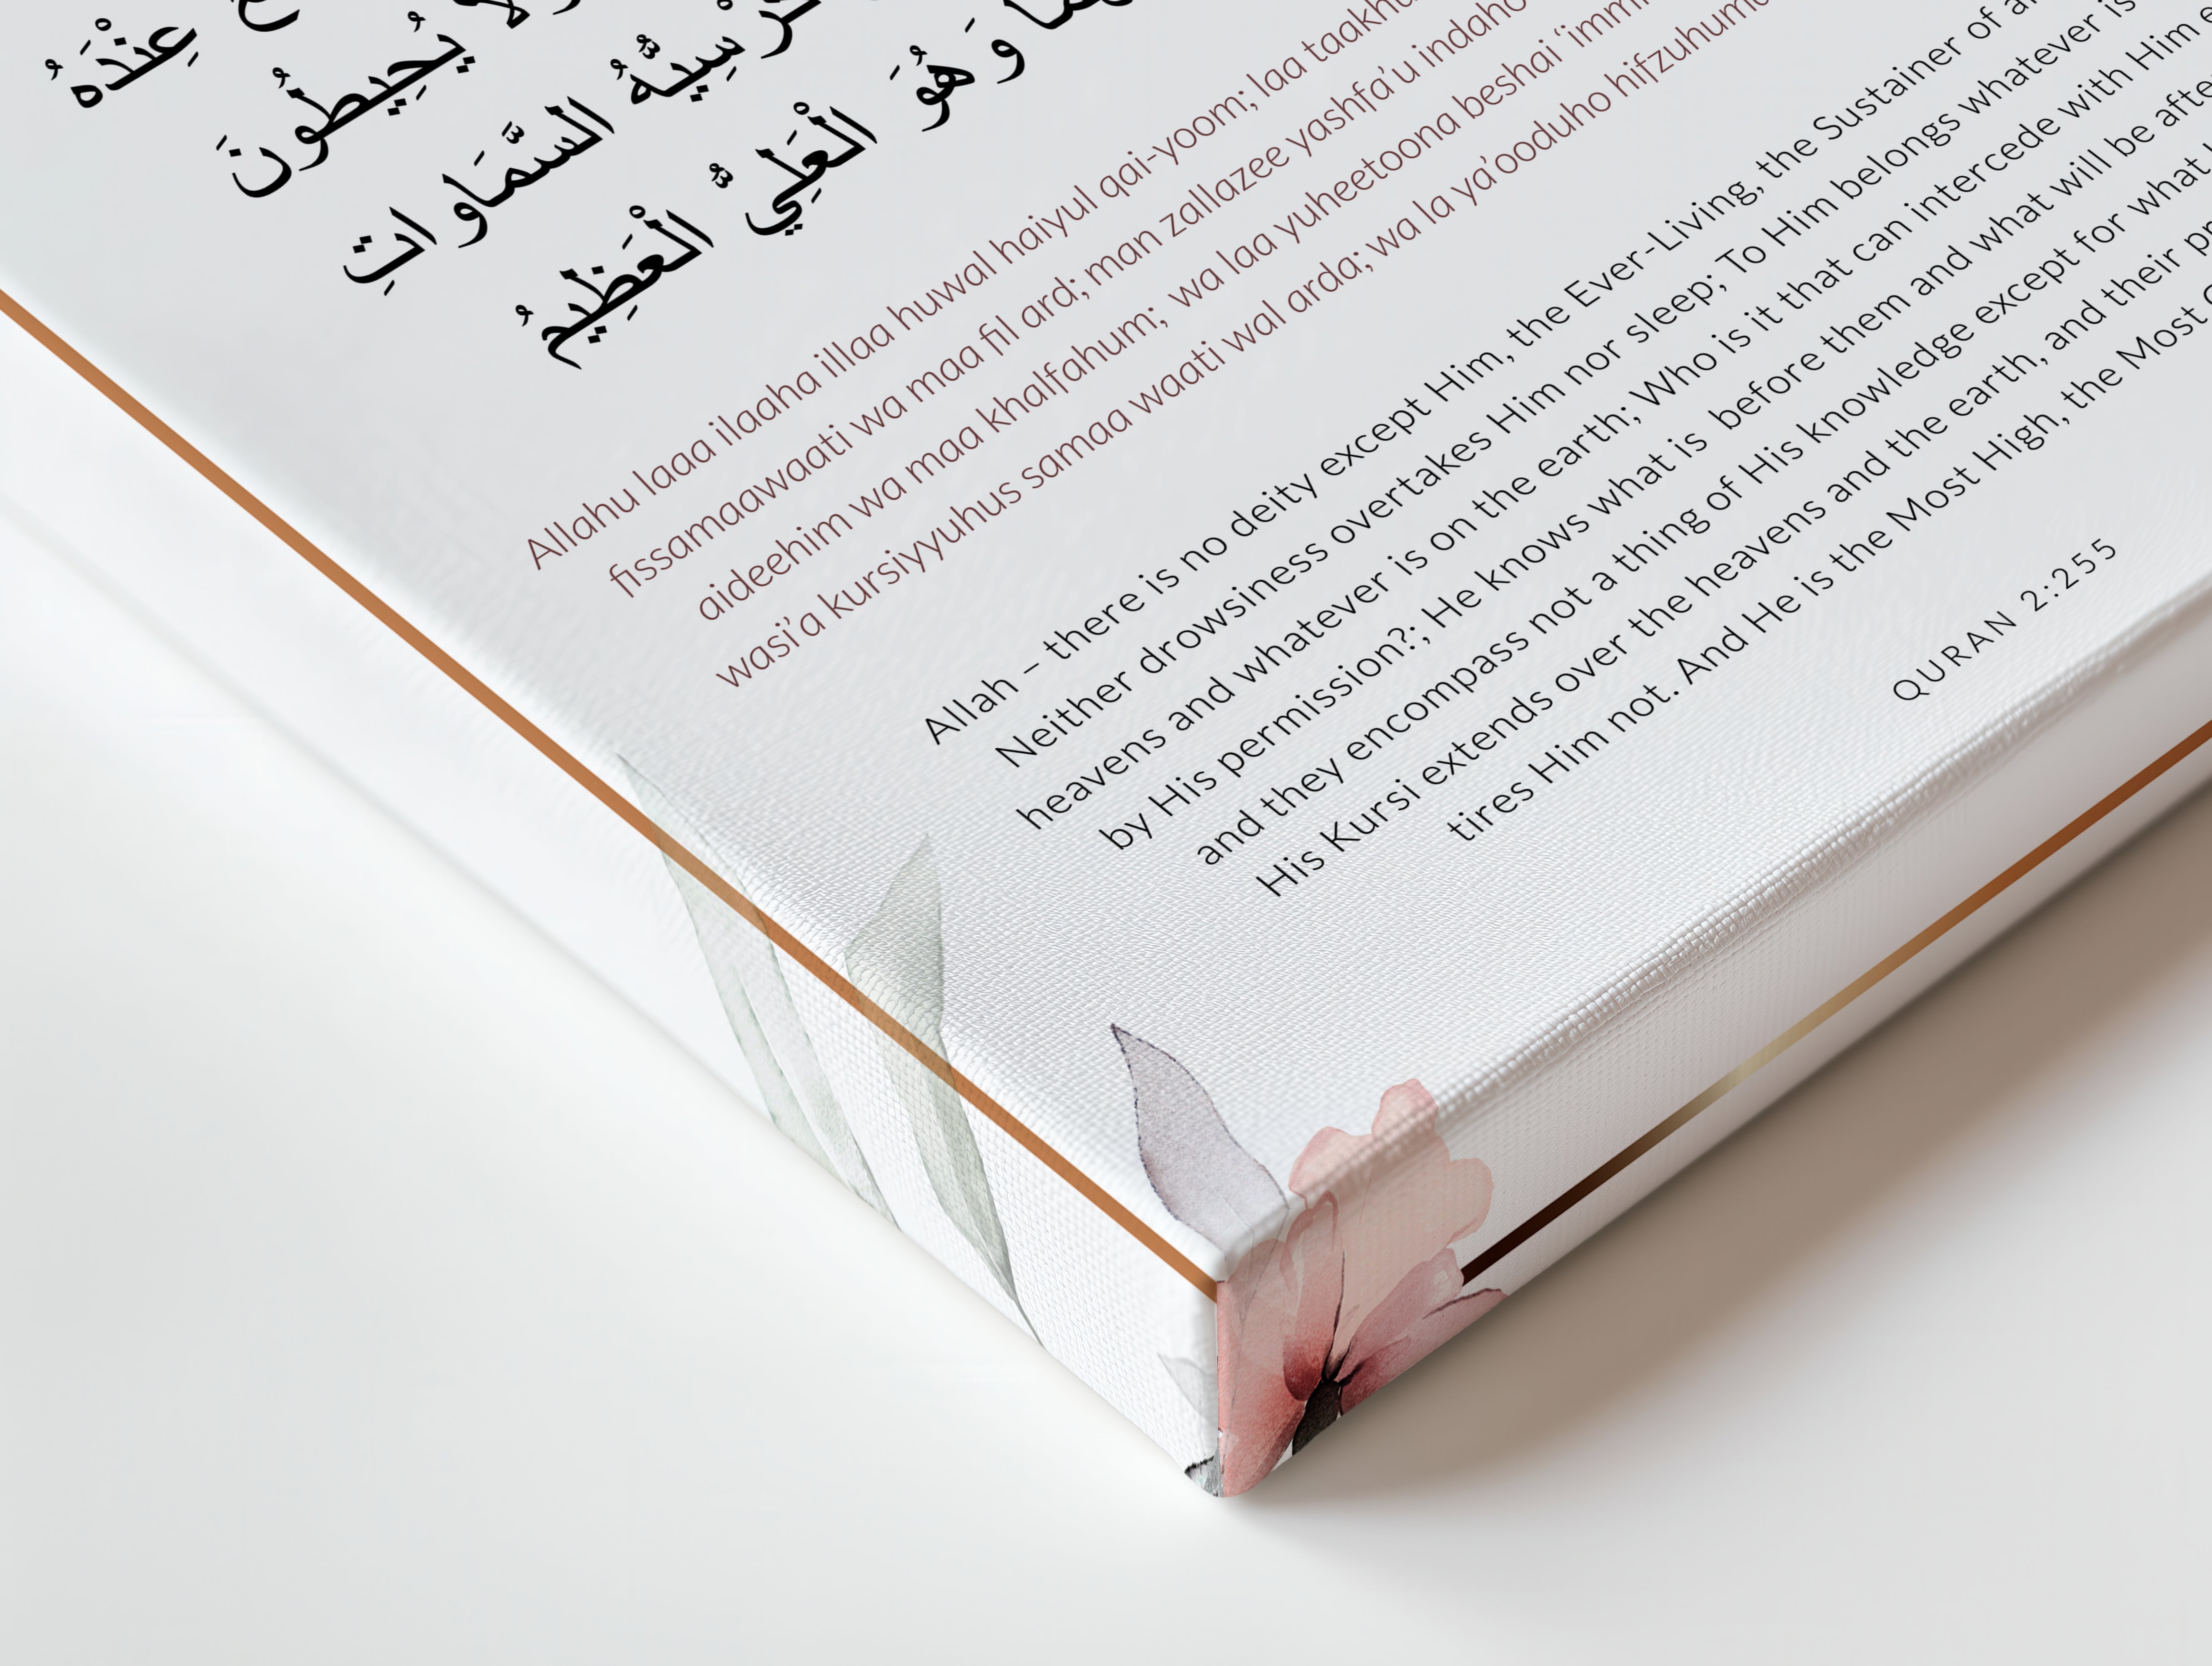 عِنْدَهُ
يُحِيطُونَ
السَّمَاوَاتِ
وَهُوَ الْعَلِيُّ الْعَظِيمُ
Allahu laaa ilaaha illaa huwal haiyul qai-yoom; laa
fissamaawaati wa maa fil ard; man zallazee yashfa'u indaho
aideehim wa maa khalfahum; wa laa yuheetoona beshai
wasi'a kursiyyuhus samaa waati wal arda; wa la ya'ooduho
Allah – there is no deity except Him, the Ever-Living, the Sustainer of
Neither drowsiness overtakes Him nor sleep; To Him belongs whatever is
heavens and whatever is on the earth; Who is it that can intercede with Him
by His permission?; He knows what is before them and what will be
and they encompass not a thing of His knowledge except for what
His Kursi extends over the heavens and the earth, and their
tires Him not. And He is the Most High, the Most
QURAN 2:255